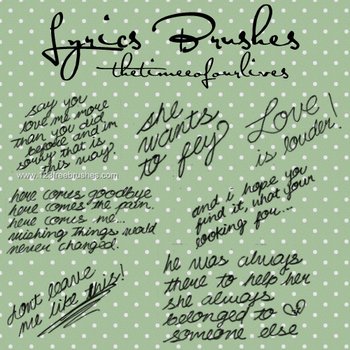 Lyrics Brushes
thetimeofourlives
say you
love me more
than you did
before and im
sorry that is
this way.
www.123freebrushes.com
she
wants
to fly?
Love
is louder!
here comes goodbye
here comes the pain.
here comes me...
wishing things would
never changed.
and i hope you
find it, what your
looking for...
dont leave
me like this!
he was always
there to help her
she always
belonged to
someone else